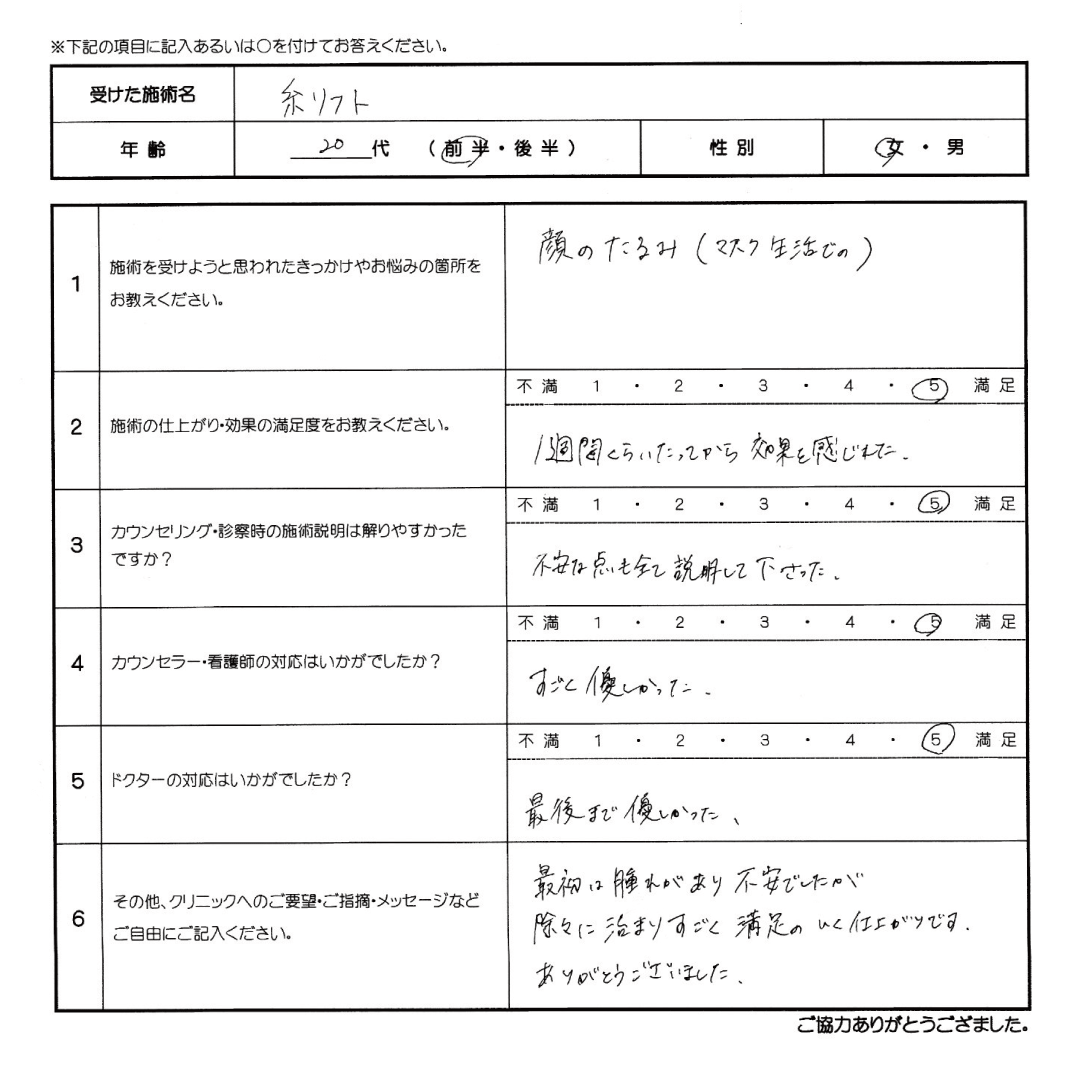 ※下記の項目に記入あるいは○を付けてお答えください。
受けた施術名 糸リフト
年齢 20代 (前半・後半) 性別 女・男
1 施術を受けようと思われたきっかけやお悩みの箇所を
お教えください。
顔のたるみ(マスク生活での)
2 施術の仕上がり・効果の満足度をお教えください。
不満 1・2・3・4・5 満足
1週間くらいたってから効果を感じれた.
3 カウンセリング・診察時の施術説明は解りやすかった
ですか?
不満 1・2・3・4・5 満足
不安な点も全て説明して下さった.
4 カウンセラー・看護師の対応はいかがでしたか?
不満 1・2・3・4・5 満足
すごく優しかった.
5 ドクターの対応はいかがでしたか?
不満 1・2・3・4・5 満足
最後まで優しかった、
6 その他、クリニックへのご要望・ご指摘・メッセージなど
ご自由にご記入ください。
最初は腫れがあり不安でしたが
除々に治まりすごく満足のいく仕上がりです.
ありがとうございました.
ご協力ありがとうござました。